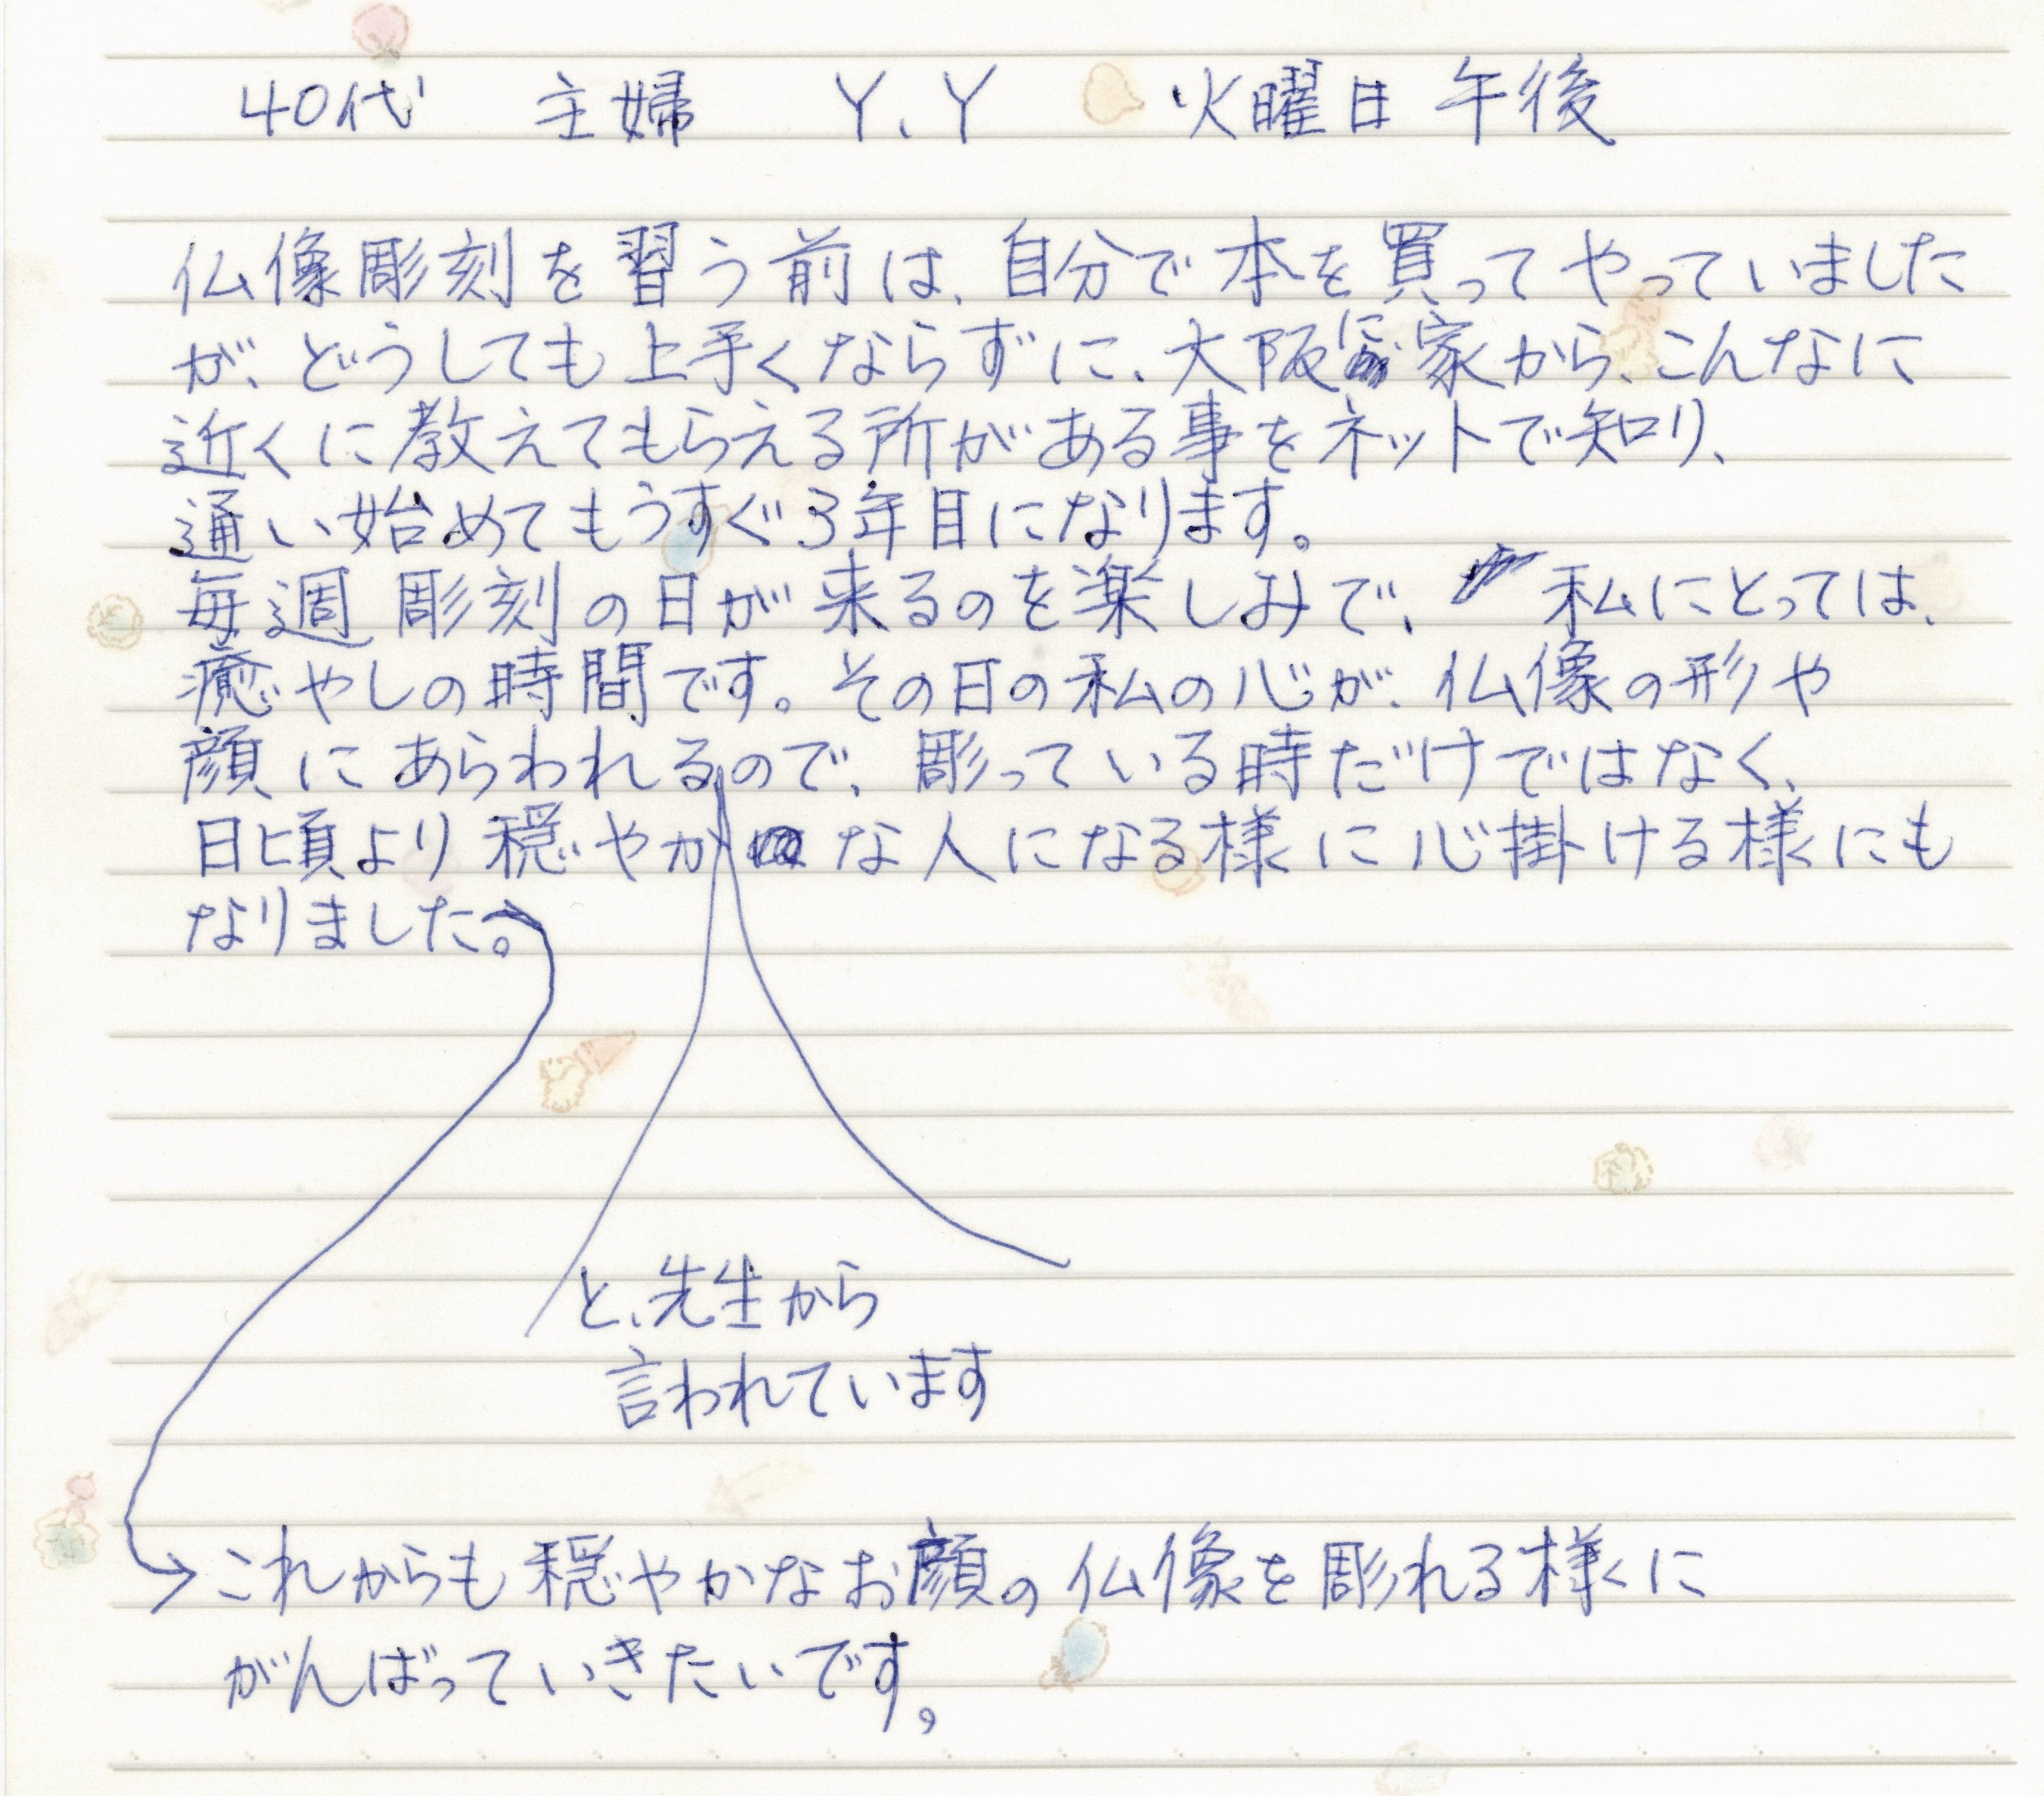 40代 主婦 Y.Y 火曜日 午後
仏像彫刻を習う前は、自分で本を買ってやっていました
が、どうしても上手くならずに、大阪に家から、こんなに
近くに教えてもらえる所がある事をネットで知り、
通い始めてもうすぐ3年目になります。
毎週 彫刻の日が来るのを楽しみで、私にとっては、
癒やしの時間です。その日の私の心が、仏像の形や
顔にあらわれるので、彫っている時だけではなく、
日頃より穏やかな人になる様に心掛ける様にも
なりました。
と、先生から
言われています
これからも穏やかなお顔の仏像を彫れる様に
がんばっていきたいです。